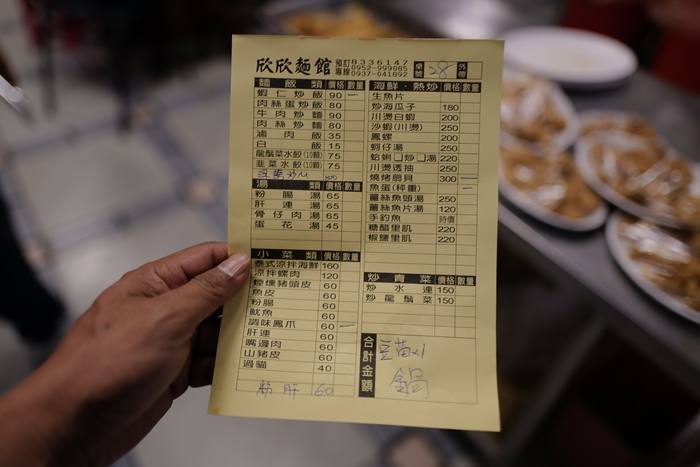 欣欣麵館 預訂專線 8336147 0952-999085 0937-041892 桌號 28 外帶
麵飯類 價格 數量
蝦仁炒飯 90 一
肉絲蛋炒飯 80
牛肉炒麵 90
肉絲炒麵 80
滷肉飯 35
白飯 15
龍鬚菜水餃(10顆) 75
韭菜水餃(10顆) 75
湯類 價格 數量
粉腸湯 65
肝連湯 65
骨仔肉湯 65
蛋花湯 45
小菜類 價格 數量
泰式涼拌海鮮 160
涼拌螺肉 120
煙燻豬頭皮 60
魚皮 60
粉腸 60
魷魚 60
調味鳳爪 60 一
肝連 60
嘴邊肉 60
山豬皮 60
過貓 40
粉肝 60
海鮮・熱炒 價格 數量
生魚片
炒海瓜子 180
川燙白蝦 200
沙蝦(川燙) 250
鳳螺 200
蚵仔湯 250
蛤蜊□炒□湯 220
川燙透抽 250
燒烤胭貝 300 一
魚蛋(秤重) 一
薑絲魚頭湯 250
薑絲魚片湯 120
手釣魚 時價
糖醋里肌 220
椒鹽里肌 220
炒青菜 價格 數量
炒水蓮 150
炒龍鬚菜 150
合計金額
豆苗x1
鍋